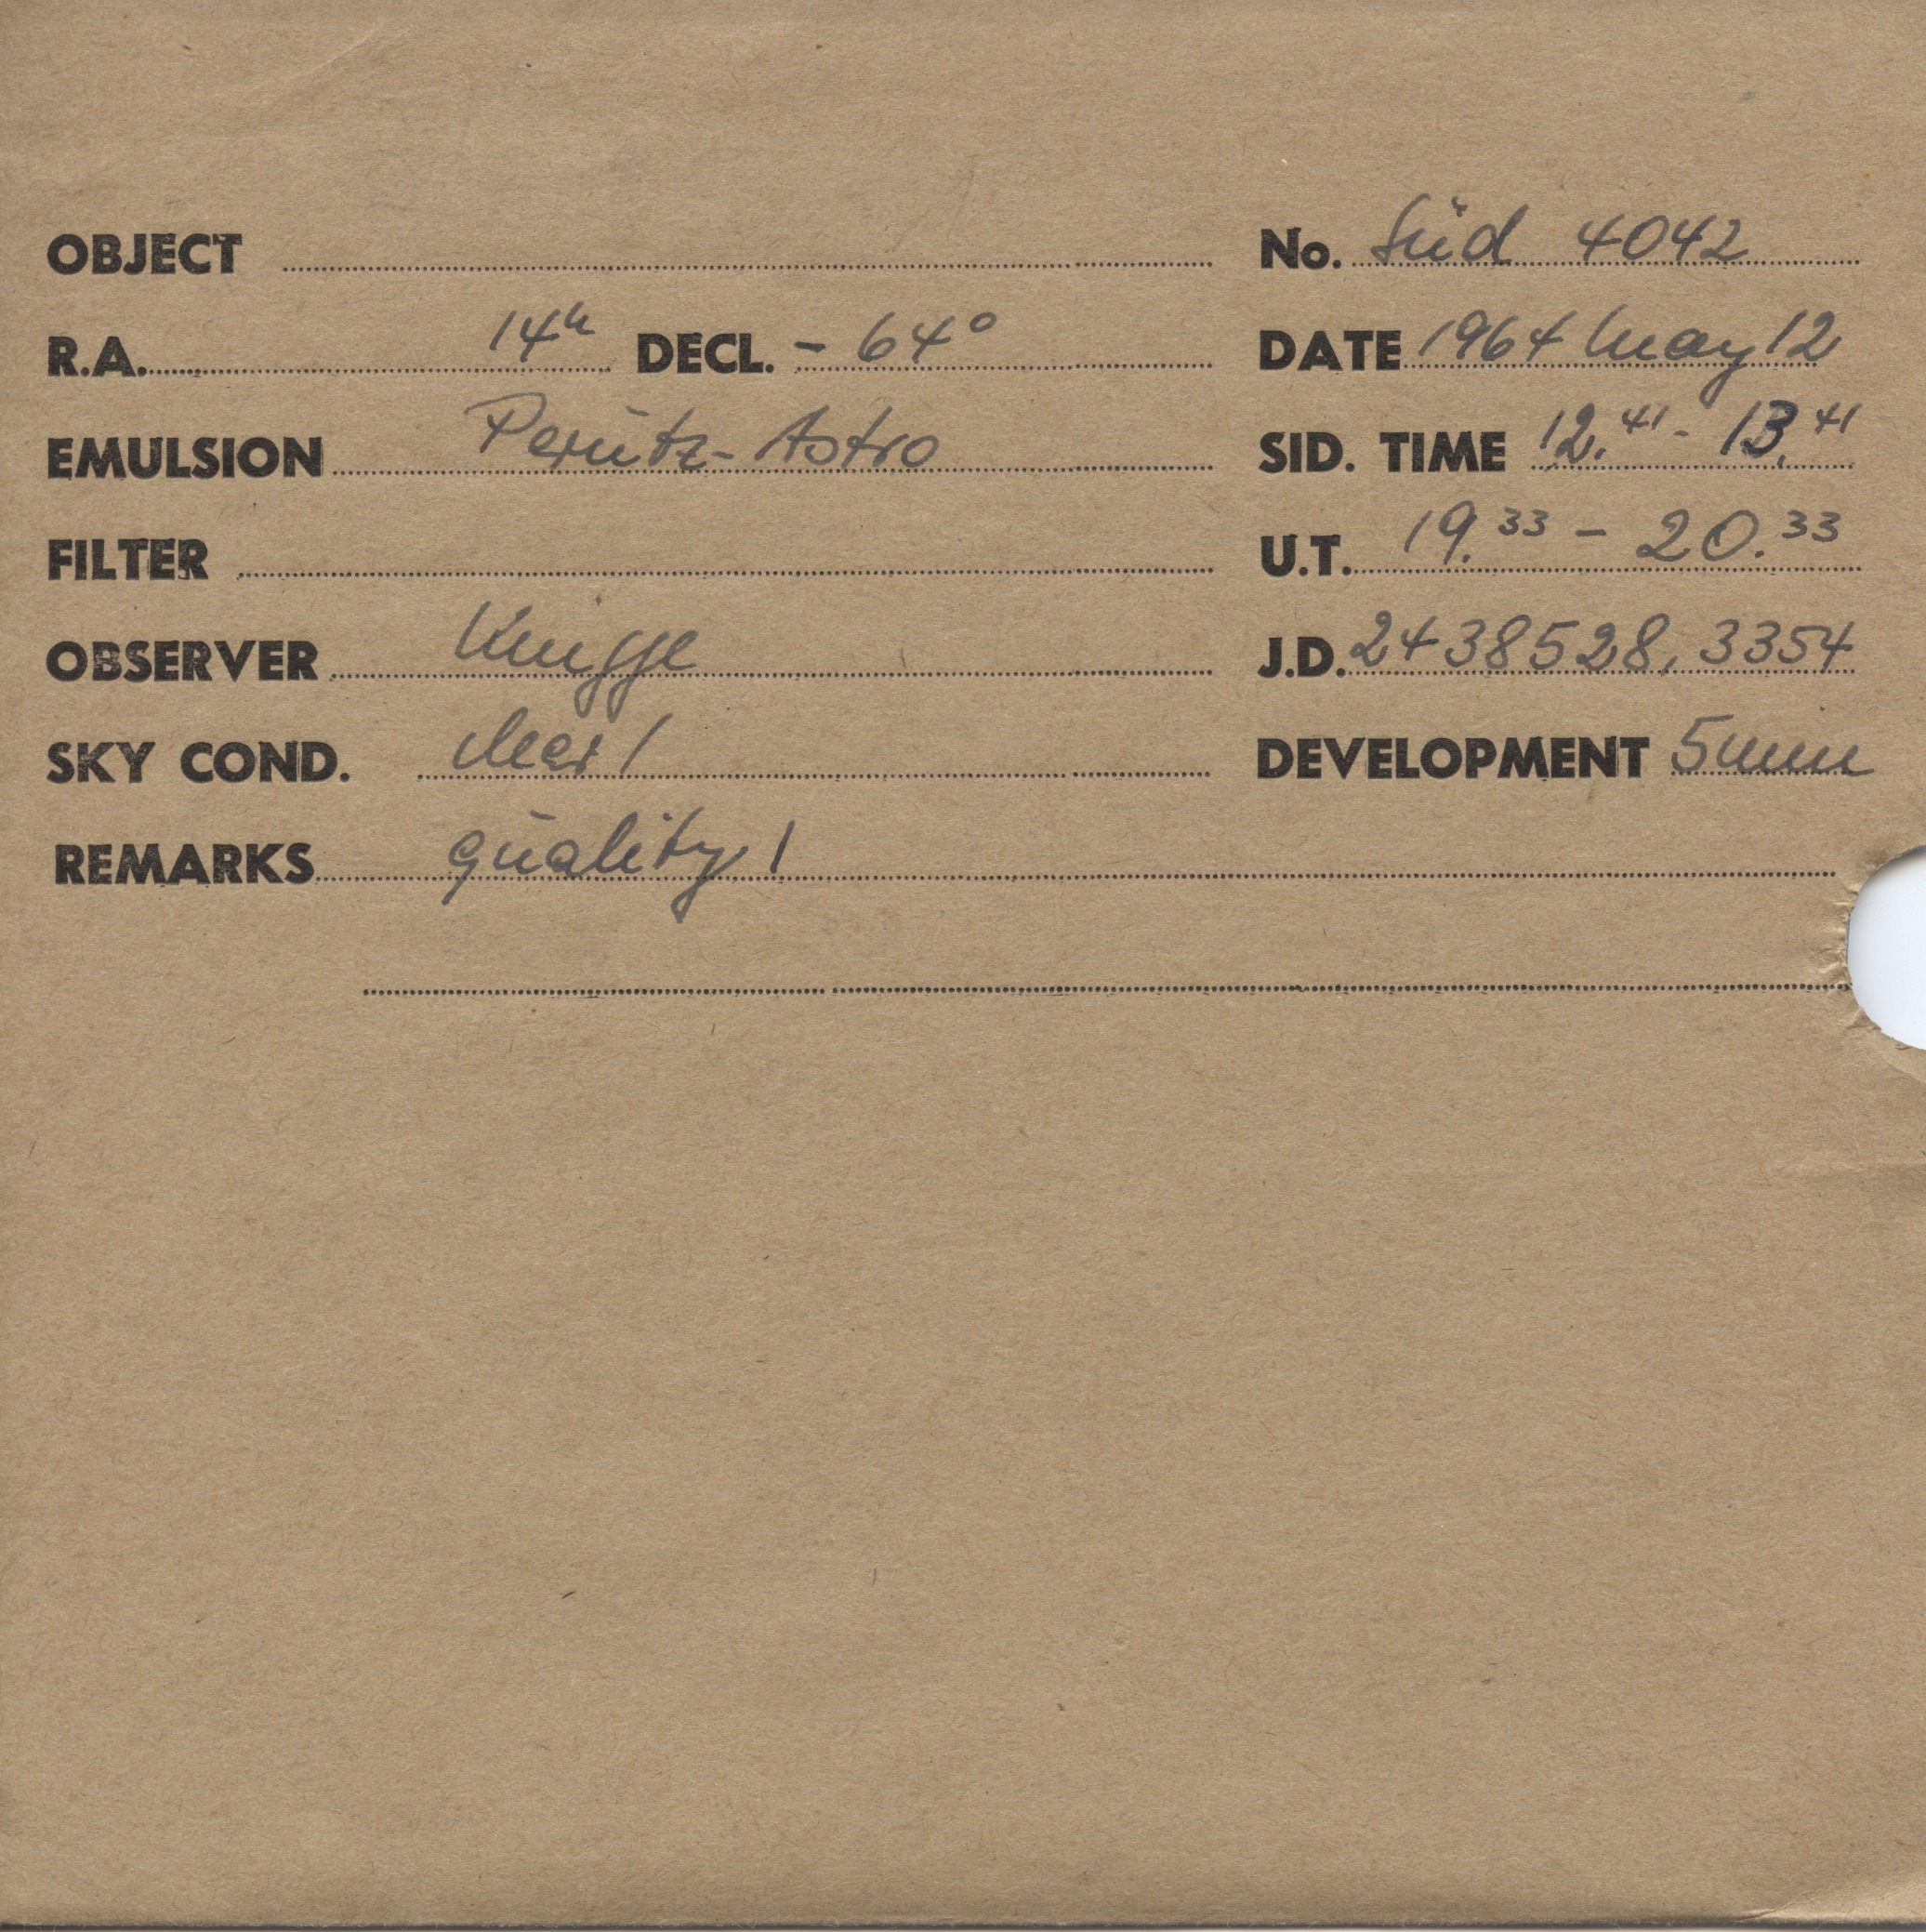 OBJECT No. Süd 4042
R.A. 14h DECL. - 64°
DATE 1964 May 12
EMULSION Perutz-Astro
SID. TIME 12.41 - 13.41
FILTER
U.T. 19.33 - 20.33
OBSERVER Knigge
J.D. 2438528,3354
SKY COND. clear 1
DEVELOPMENT 5 min
REMARKS quality 1